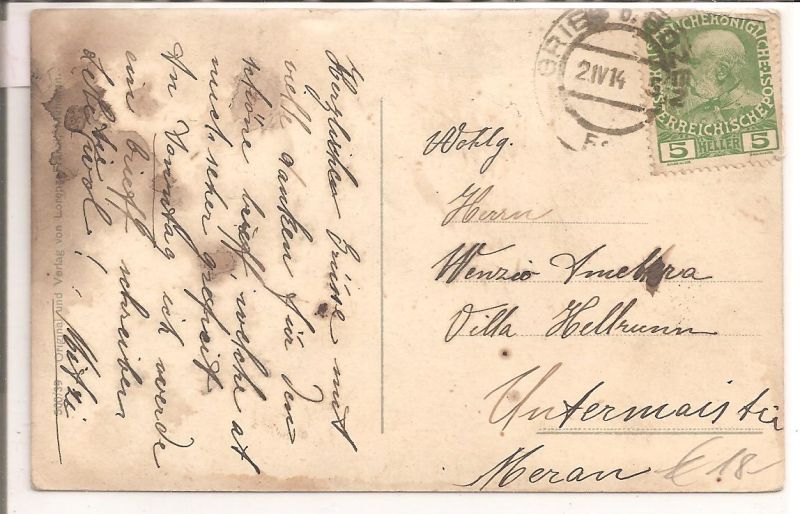 Herzlichen Grüsse mit
viele danken für den
schöne brief welche at
mich seher gefreit
An Sonntag ich werde
ein brieff schreiben
Lebe wol! Mitzi
500/39 Original und Verlag von Lorenz
GRIES b. BOZEN
2 IV 14
KAISERLICHEKÖNIGLICHE
ÖSTERREICHISCHE POST
5 HELLER 5
Wohlg.
Herrn
Wenzio Smekra
Villa Hellrunn
Untermais bei
Meran
€ 18